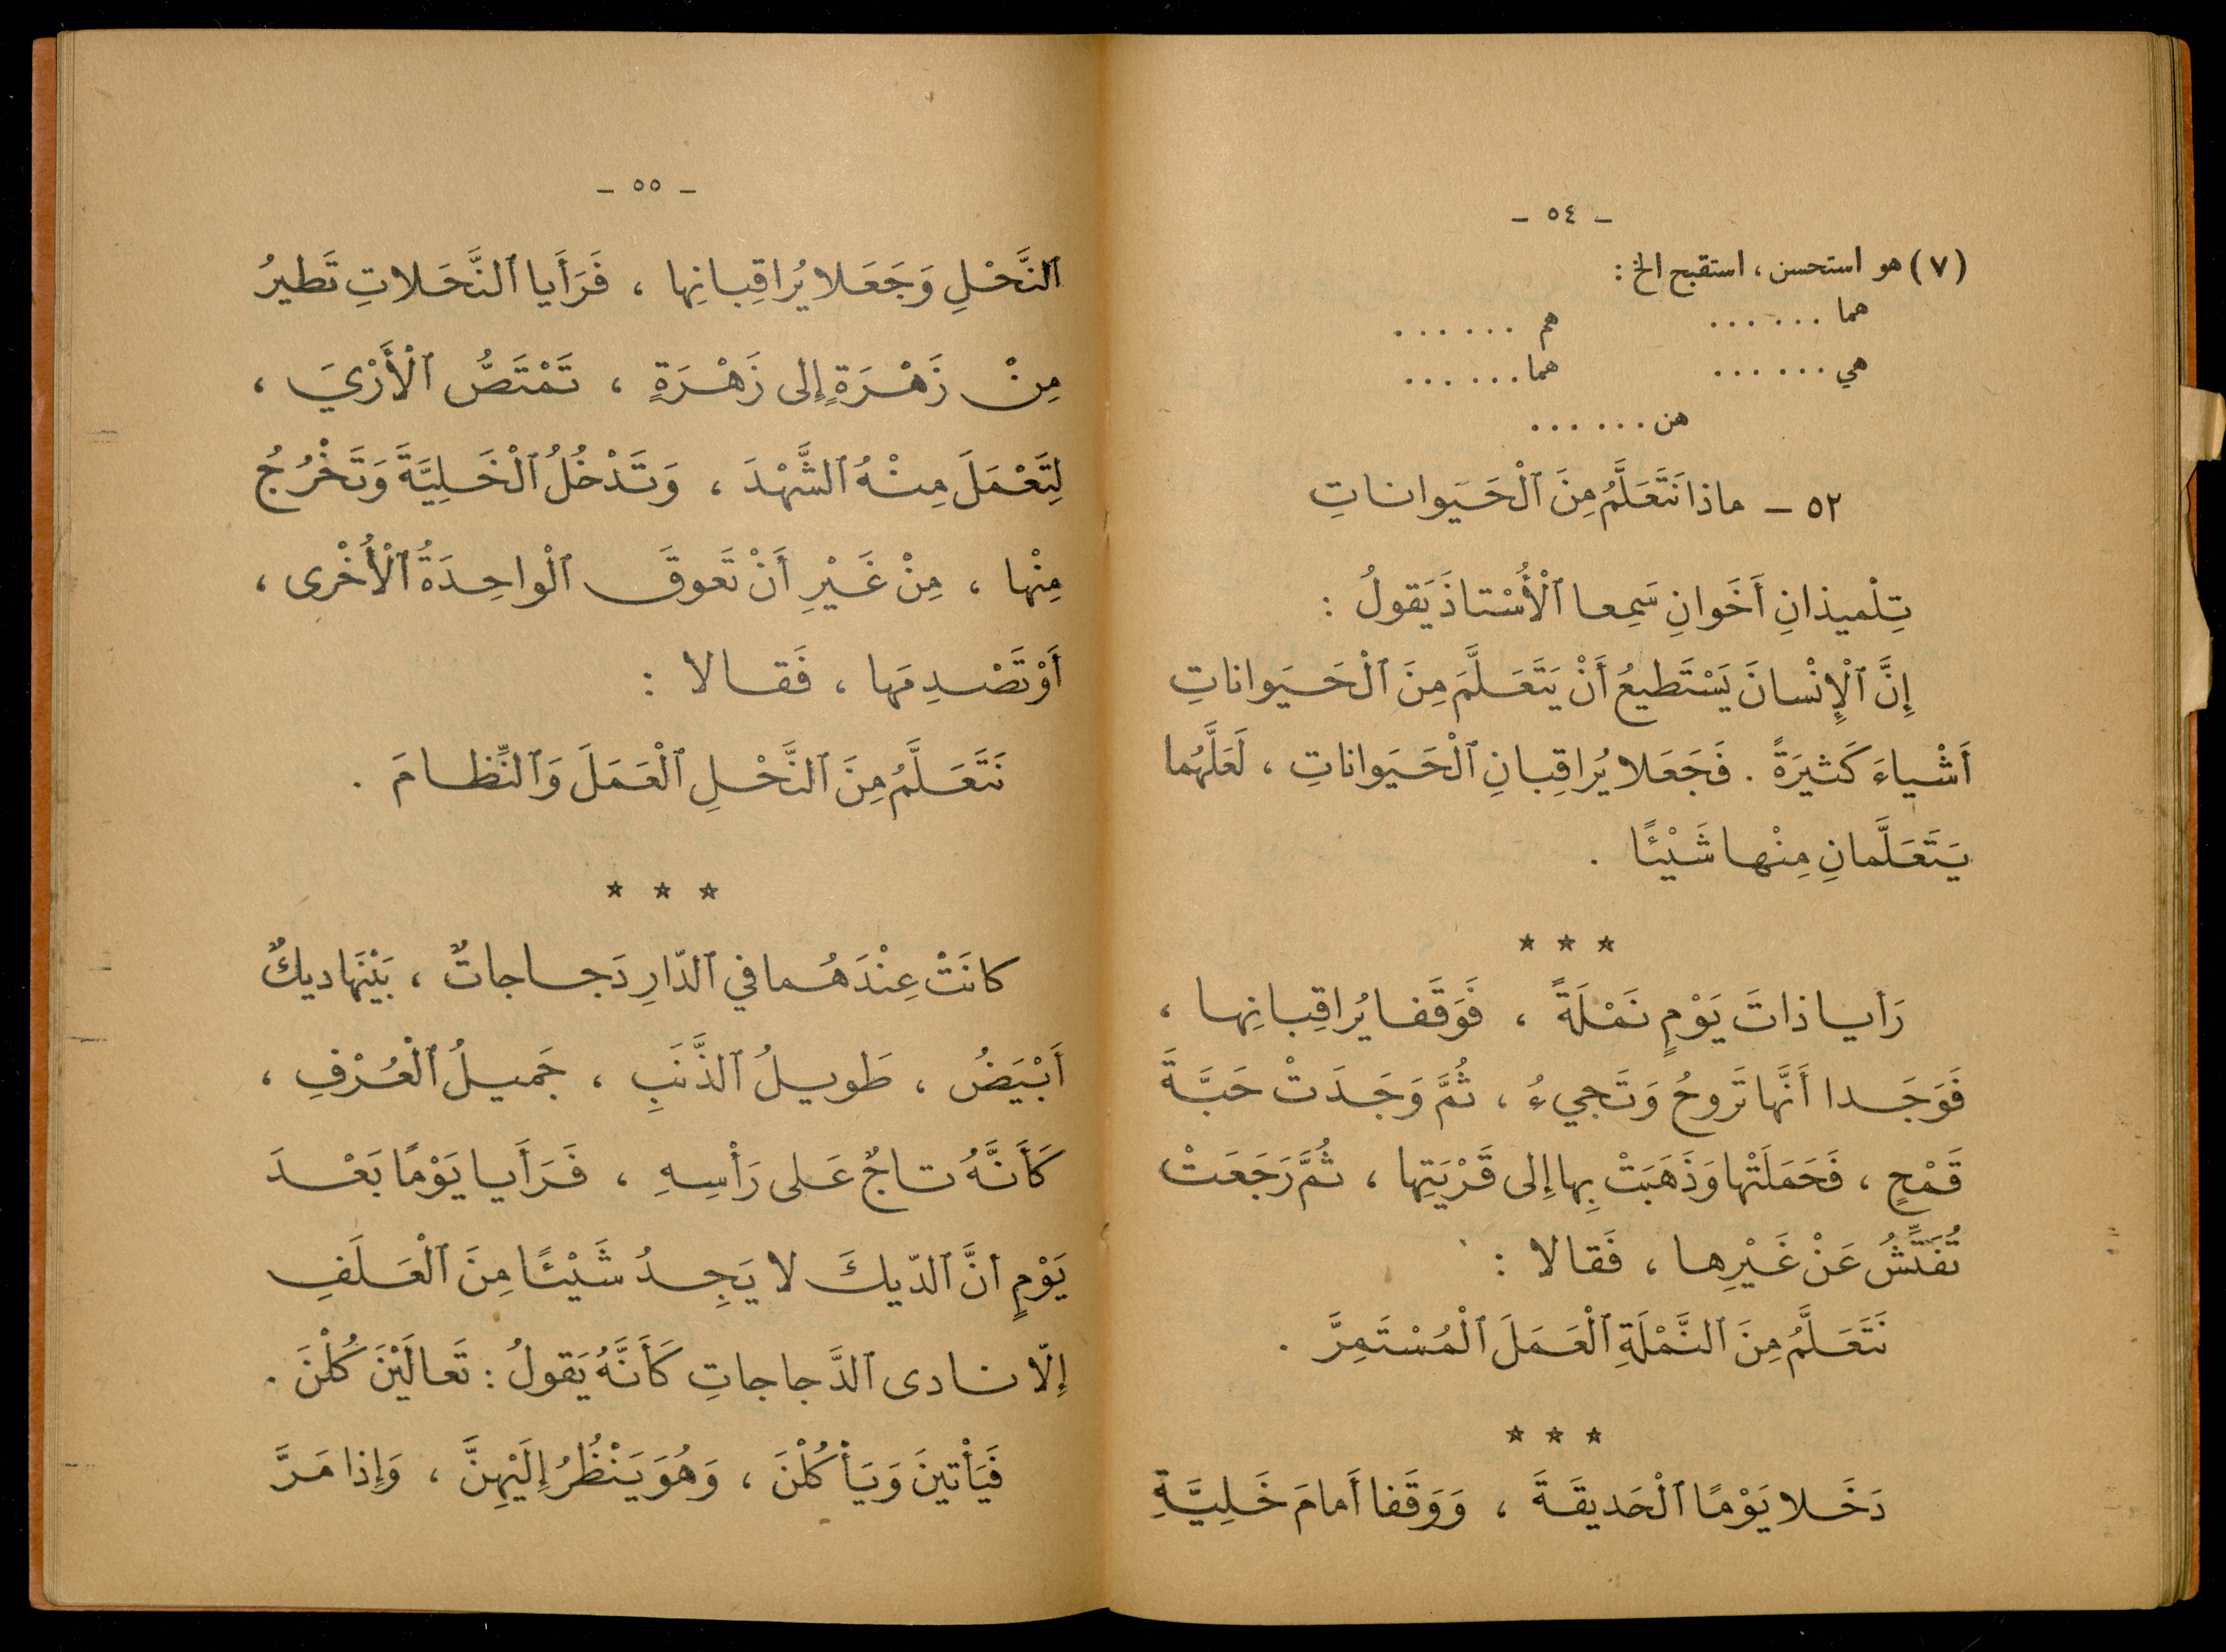 - ٥٤ -
(٧) هو استحسن ، استقبح الخ :
هما ...... هم ......
هي ...... هما ......
هن ......
٥٢ - ماذا نَتَعَلَّمُ مِنَ ٱلْحَيَوانـاتِ
تِلْميذانِ أَخَوانِ سَمِعا ٱلْأُسْتاذَ يَقولُ :
إِنَّ ٱلْإِنْسانَ يَسْتَطيعُ أَنْ يَتَعَلَّمَ مِنَ ٱلْحَيَواناتِ
أَشْياءَ كَثيرَةً . فَجَعَلا يُراقِبانِ ٱلْحَيَواناتِ ، لَعَلَّهُما
يَتَعَلَّمانِ مِنْها شَيْئًا .
* * *
رَأَيا ذاتَ يَوْمٍ نَمْلَةً ، فَوَقَفا يُراقِبانِها ،
فَوَجَدا أَنَّها تَروحُ وَتَجيءُ ، ثُمَّ وَجَدَتْ حَبَّةَ
قَمْحٍ ، فَحَمَلَتْها وَذَهَبَتْ بِها إِلى قَرْيَتِها ، ثُمَّ رَجَعَتْ
تُفَتِّشُ عَنْ غَيْرِها ، فَقالا :
نَتَعَلَّمُ مِنَ ٱلنَّمْلَةِ ٱلْعَمَلَ ٱلْمُسْتَمِرَّ .
* * *
دَخَلا يَوْمًا ٱلْحَديقَةَ ، وَوَقَفا أَمامَ خَلِيَّةِ
- ٥٥ -
ٱلنَّحْلِ وَجَعَلا يُراقِبانِها ، فَرَأَيا ٱلنَّحَلاتِ تَطيرُ
مِنْ زَهْرَةٍ إِلى زَهْرَةٍ ، تَمْتَصُّ ٱلْأَرْيَ ،
لِتَعْمَلَ مِنْهُ ٱلشَّهْدَ ، وَتَدْخُلُ ٱلْخَلِيَّةَ وَتَخْرُجُ
مِنْها ، مِنْ غَيْرِ أَنْ تَعوقَ ٱلْواحِدَةُ ٱلْأُخْرى ،
أَوْ تَصْدِمَها ، فَقالا :
نَتَعَلَّمُ مِنَ ٱلنَّحْلِ ٱلْعَمَلَ وَٱلنِّظامَ .
* * *
كانَتْ عِنْدَهُما في ٱلدّارِ دَجاجاتٌ ، بَيْنَها ديكٌ
أَبْيَضُ ، طَويلُ ٱلذَّنَبِ ، جَميلُ ٱلْعُرْفِ ،
كَأَنَّهُ تاجٌ عَلى رَأْسِهِ ، فَرَأَيا يَوْمًا بَعْدَ
يَوْمٍ أنَّ ٱلدّيكَ لا يَجِدُ شَيْئًا مِنَ ٱلْعَلَفِ
إِلّا نادى ٱلدَّجاجاتِ كَأَنَّهُ يَقولُ : تَعالَيْنَ كُلْنَ .
فَيَأْتينَ وَيَأْكُلْنَ ، وَهُوَ يَنْظُرُ إِلَيْهِنَّ ، وَإِذا مَرَّ